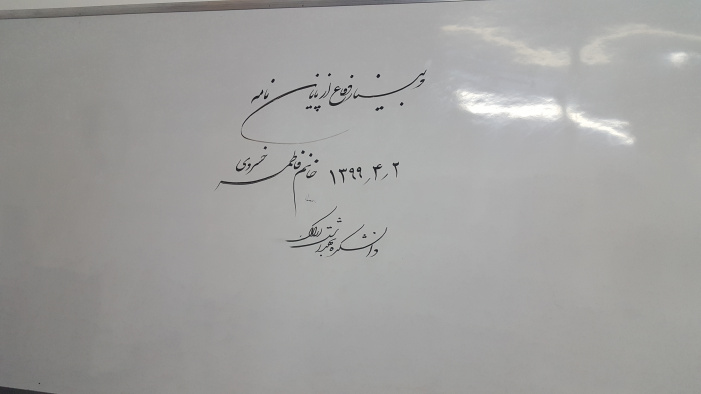 وبینار دفاع از پایان نامه
خانم فاطمه خسروی ۱۳۹۹٫۴٫۲
دانشکده بهداشت اراک